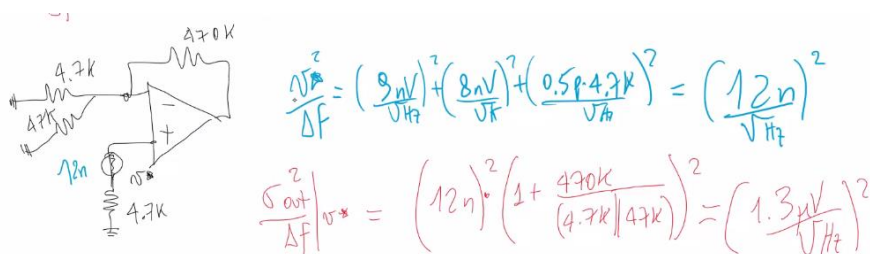 470K
4.7K
47K
12n
v*
4.7K
− +
v*² / Δf = (9nV/√Hz)² + (8nV/√F)² + (0.5p·4.7K/√Hz)² = (12n/√Hz)²
σ²out / Δf |v* = (12n)² (1 + 470K/(4.7K||47K))² = (1.3μV/√Hz)²